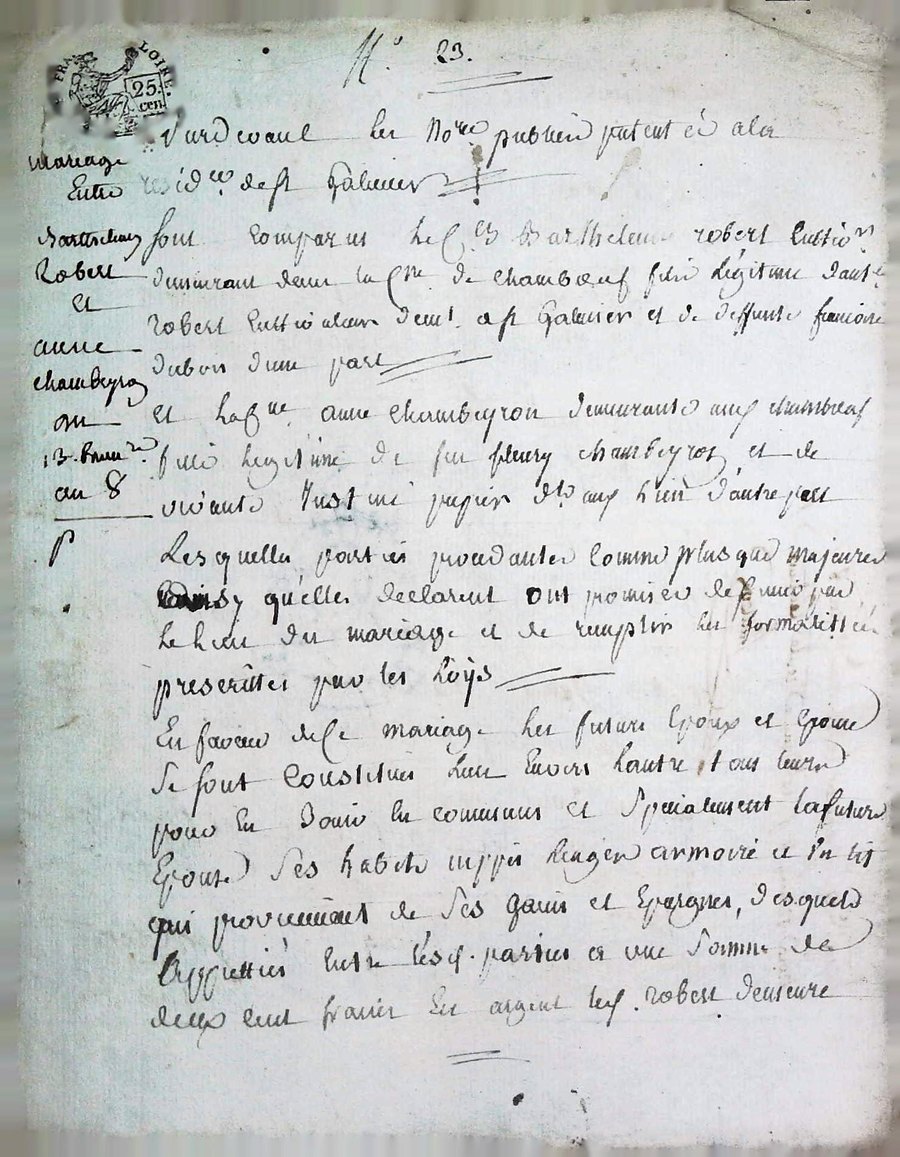 N.° 23.
FRA LOIRE.
25.
cen.
Pardevant les No.re publics patenté a la
resid.ce de st Galmier
mariage
Entre
Barthelemy
Robert
et
anne
chambeyron
du
13. brum.re
an 8
p
sont comparus le C.en Barthelemi robert
demeurant dans la C.ne de chambœuf fils légitime dant
robert dem.t a st Galmier et de deffunte francoise
dubois dune part
et la C.ne anne chambeyron demeurante aux chambœuf
fille legitime de feu fleury chambeyron et de
vivante Justine papier d.te aux d'autre part
Lesquelles parties procedantes comme plus que majeures
ainsy qu'elles declarent ont promises de s'unir par
le lien du mariage et de remplir les formalittées
prescrittes par les loÿs
En faveur de Ce mariage les futurs Epoux et Epouse
Se sont Constitués lun Envers l'autre tous leurs
pour En Jouir En communs et Specialement la future
Epouse Ses habits nippes linges armoire et Un lit
qui proviennent de Ses Gains et Epargnes, desquels
Apprettiés Entre lesd. parties a une Somme de
deux cent francs En argent led. robert demeure